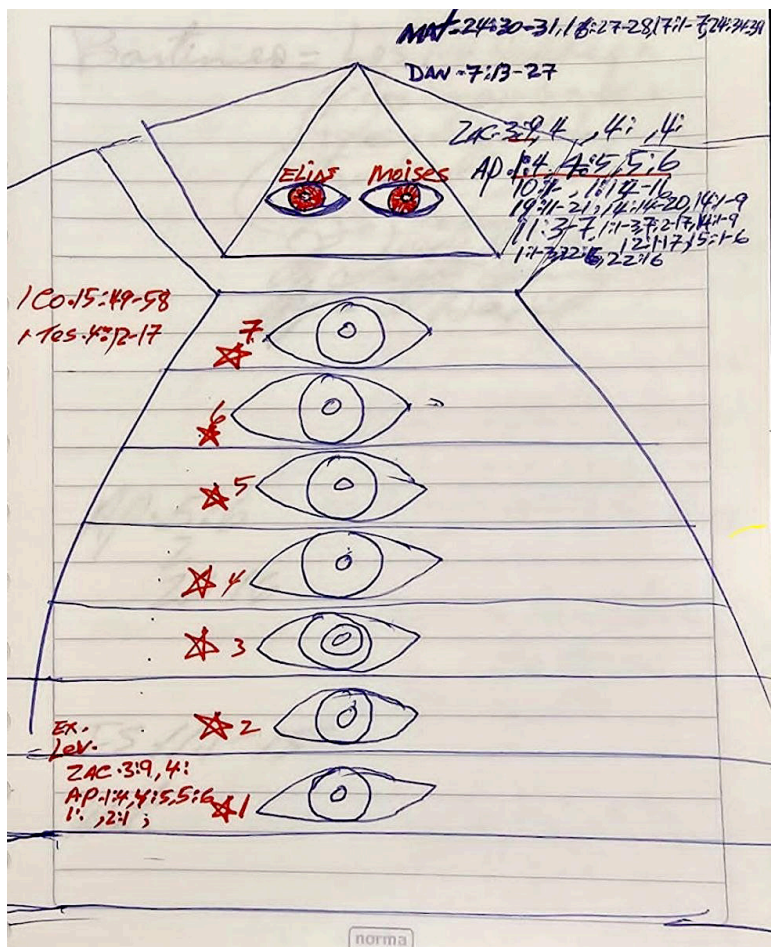 MAT-24:30-31, 16:27-28, 17:1-7, 24:34-39
DAN-7:13-27
ZAC-3:9, 4 , 4: , 4:
AP.1:4, 4:5, 5:6
10:1- , 1:14-16
19:11-21, 14:14-20, 14:1-9
11:3-7, 1:1-3,
ELIAS MOISES
1 Co.15:49-58
1 Tes.4:12-17
7
6
5
4
3
2
EX.
LeV.
ZAC.3:9, 4:
AP.1:4, 4:5, 5:6
1: , 2:1 ;
1
norma